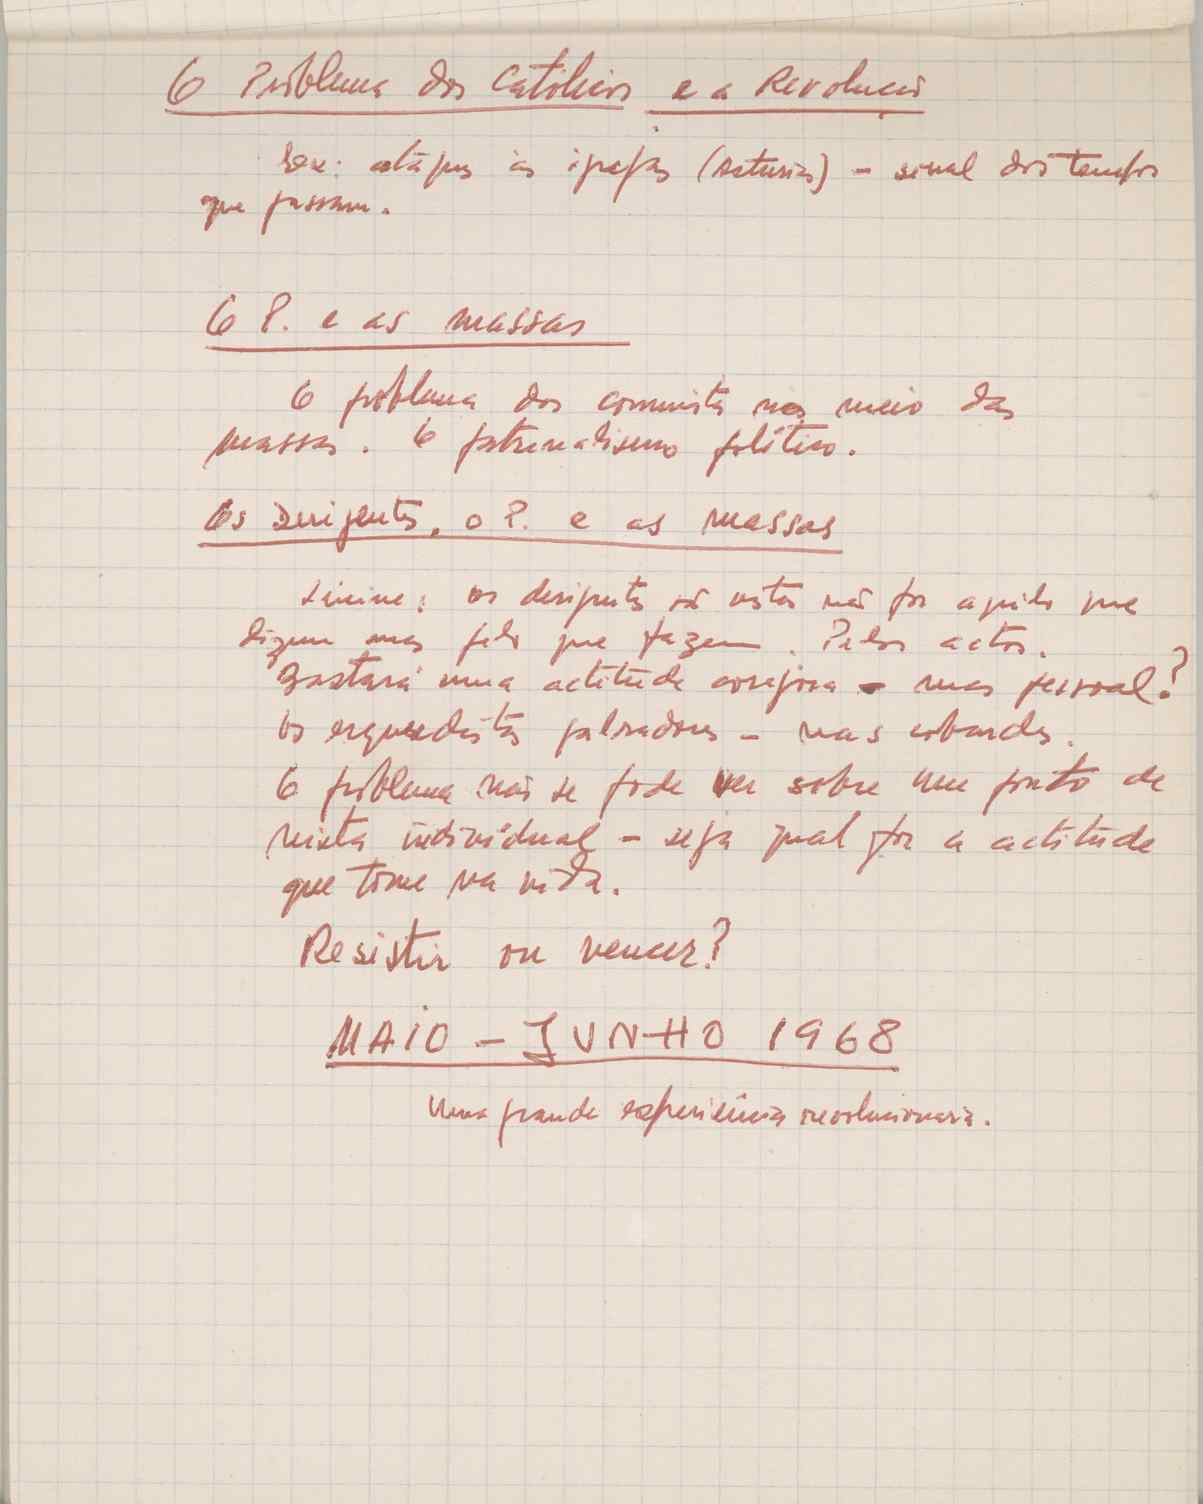 O Problema dos Católicos e a Revolução
ataques às igrejas (Asturias) - sinal dos tempos
que passam.
O P. e as massas
O problema dos comunistas no meio das
massas. O paternalismo político.
Os Dirigentes, o P. e as massas
Lénine: os dirigentes são vistos não por aquilo que
dizem mas pelo que fazem. Pelos actos.
Bastará uma actitude corajosa - mas pessoal?
Os esquerdistas palradores - mas cobardes.
O problema não se pode ver sobre um ponto de
vista individual - seja qual for a actitude
que tome na vida.
Resistir ou vencer?
MAIO - JUNHO 1968
Uma grande experiência revolucionaria.